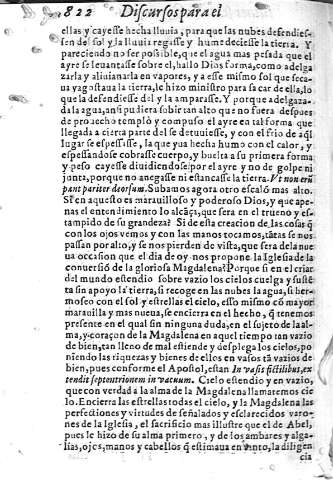 822 Discursos para el
ellas y cayesse hecha lluuia, para que las nubes defendies-
sen del sol, y la lluuia regasse y humedeciesse la tierra. Y
pareciendo no ser possible, que el agua mas pesada que el
ayre se leuantasse sobre el, hallo Dios forma, como adelga-
zarla y aliuianarla en vapores, y a esse mismo sol que seca-
ua y agostaua la tierra, le hizo ministro para sacar de ella, lo
que la defendiesse del y la amparasse. Y porque adelgaza-
da la agua, aun pudiera subir tan alto que no fuera despues
de prouecho templò y compuso el ayre en tal forma que
llegada a cierta parte del se detuuiesse, y con el frio de aq̃l
lugar se espessasse, la que yua hecha humo con el calor, y
espessandose cobrasse cuerpo, y buelta a su primera forma
y peso cayesse diuidiendose por el ayre y no de golpe ni
junta, porque no anegasse ni estancasse la tierra. Vt non erũ
pant pariter deorsum. Subamos agora otro escalõ mas alto.
Si en aquesto es marauilloso y poderoso Dios, y que ape-
nas el entendimiento lo alcãça, que sera en el trueno y es-
tampido de su grandeza? Si desta creacion de las cosas q̃
con los ojos vemos y con las manos tocamos, tãtas se nos
passan por alto, y se nos pierden de vista, que sera de la nue
ua occasion que el dia de oy nos propone la Iglesia de la
conuersiõ de la gloriosa Magdalena? Porque si en el criar
del mundo estendio sobre vazio los cielos cuelga y susté
ta sin apoyo la tierra, si recoge en las nubes la agua, si her-
moseo con el sol y estrellas el cielo, esso mismo cõ mayor
marauilla y mas nueua, se encierra en el hecho, q̃ tenemos
presente en el qual sin ninguna duda, en el sujeto de la al-
ma, y coraçon de la Magdalena en aquel tiempo tan vazio
de bien, tan lleno de mal estiende y desplega los cielos, po
niendo las riquezas y bienes dellos en vasos tã vazios de
bien, pues conforme el Apostol, estan In vasis fictilibus, ex
tendit septentrionem in vacuum. Cielo estendio y en vazio,
que con verdad a la alma de la Magdalena llamaremos cie
lo. Encierra las estrellas todas el cielo, y la Magdalena las
perfectiones y virtudes de señalados y esclarecidos varo-
nes de la Iglesia, el sacrificio mas illustre que el de Abel,
pues le hizo de su alma primero, y de los ambares y alga-
lias, ojos, manos y cabellos q̃ estimaua en tanto, la diligen
cia